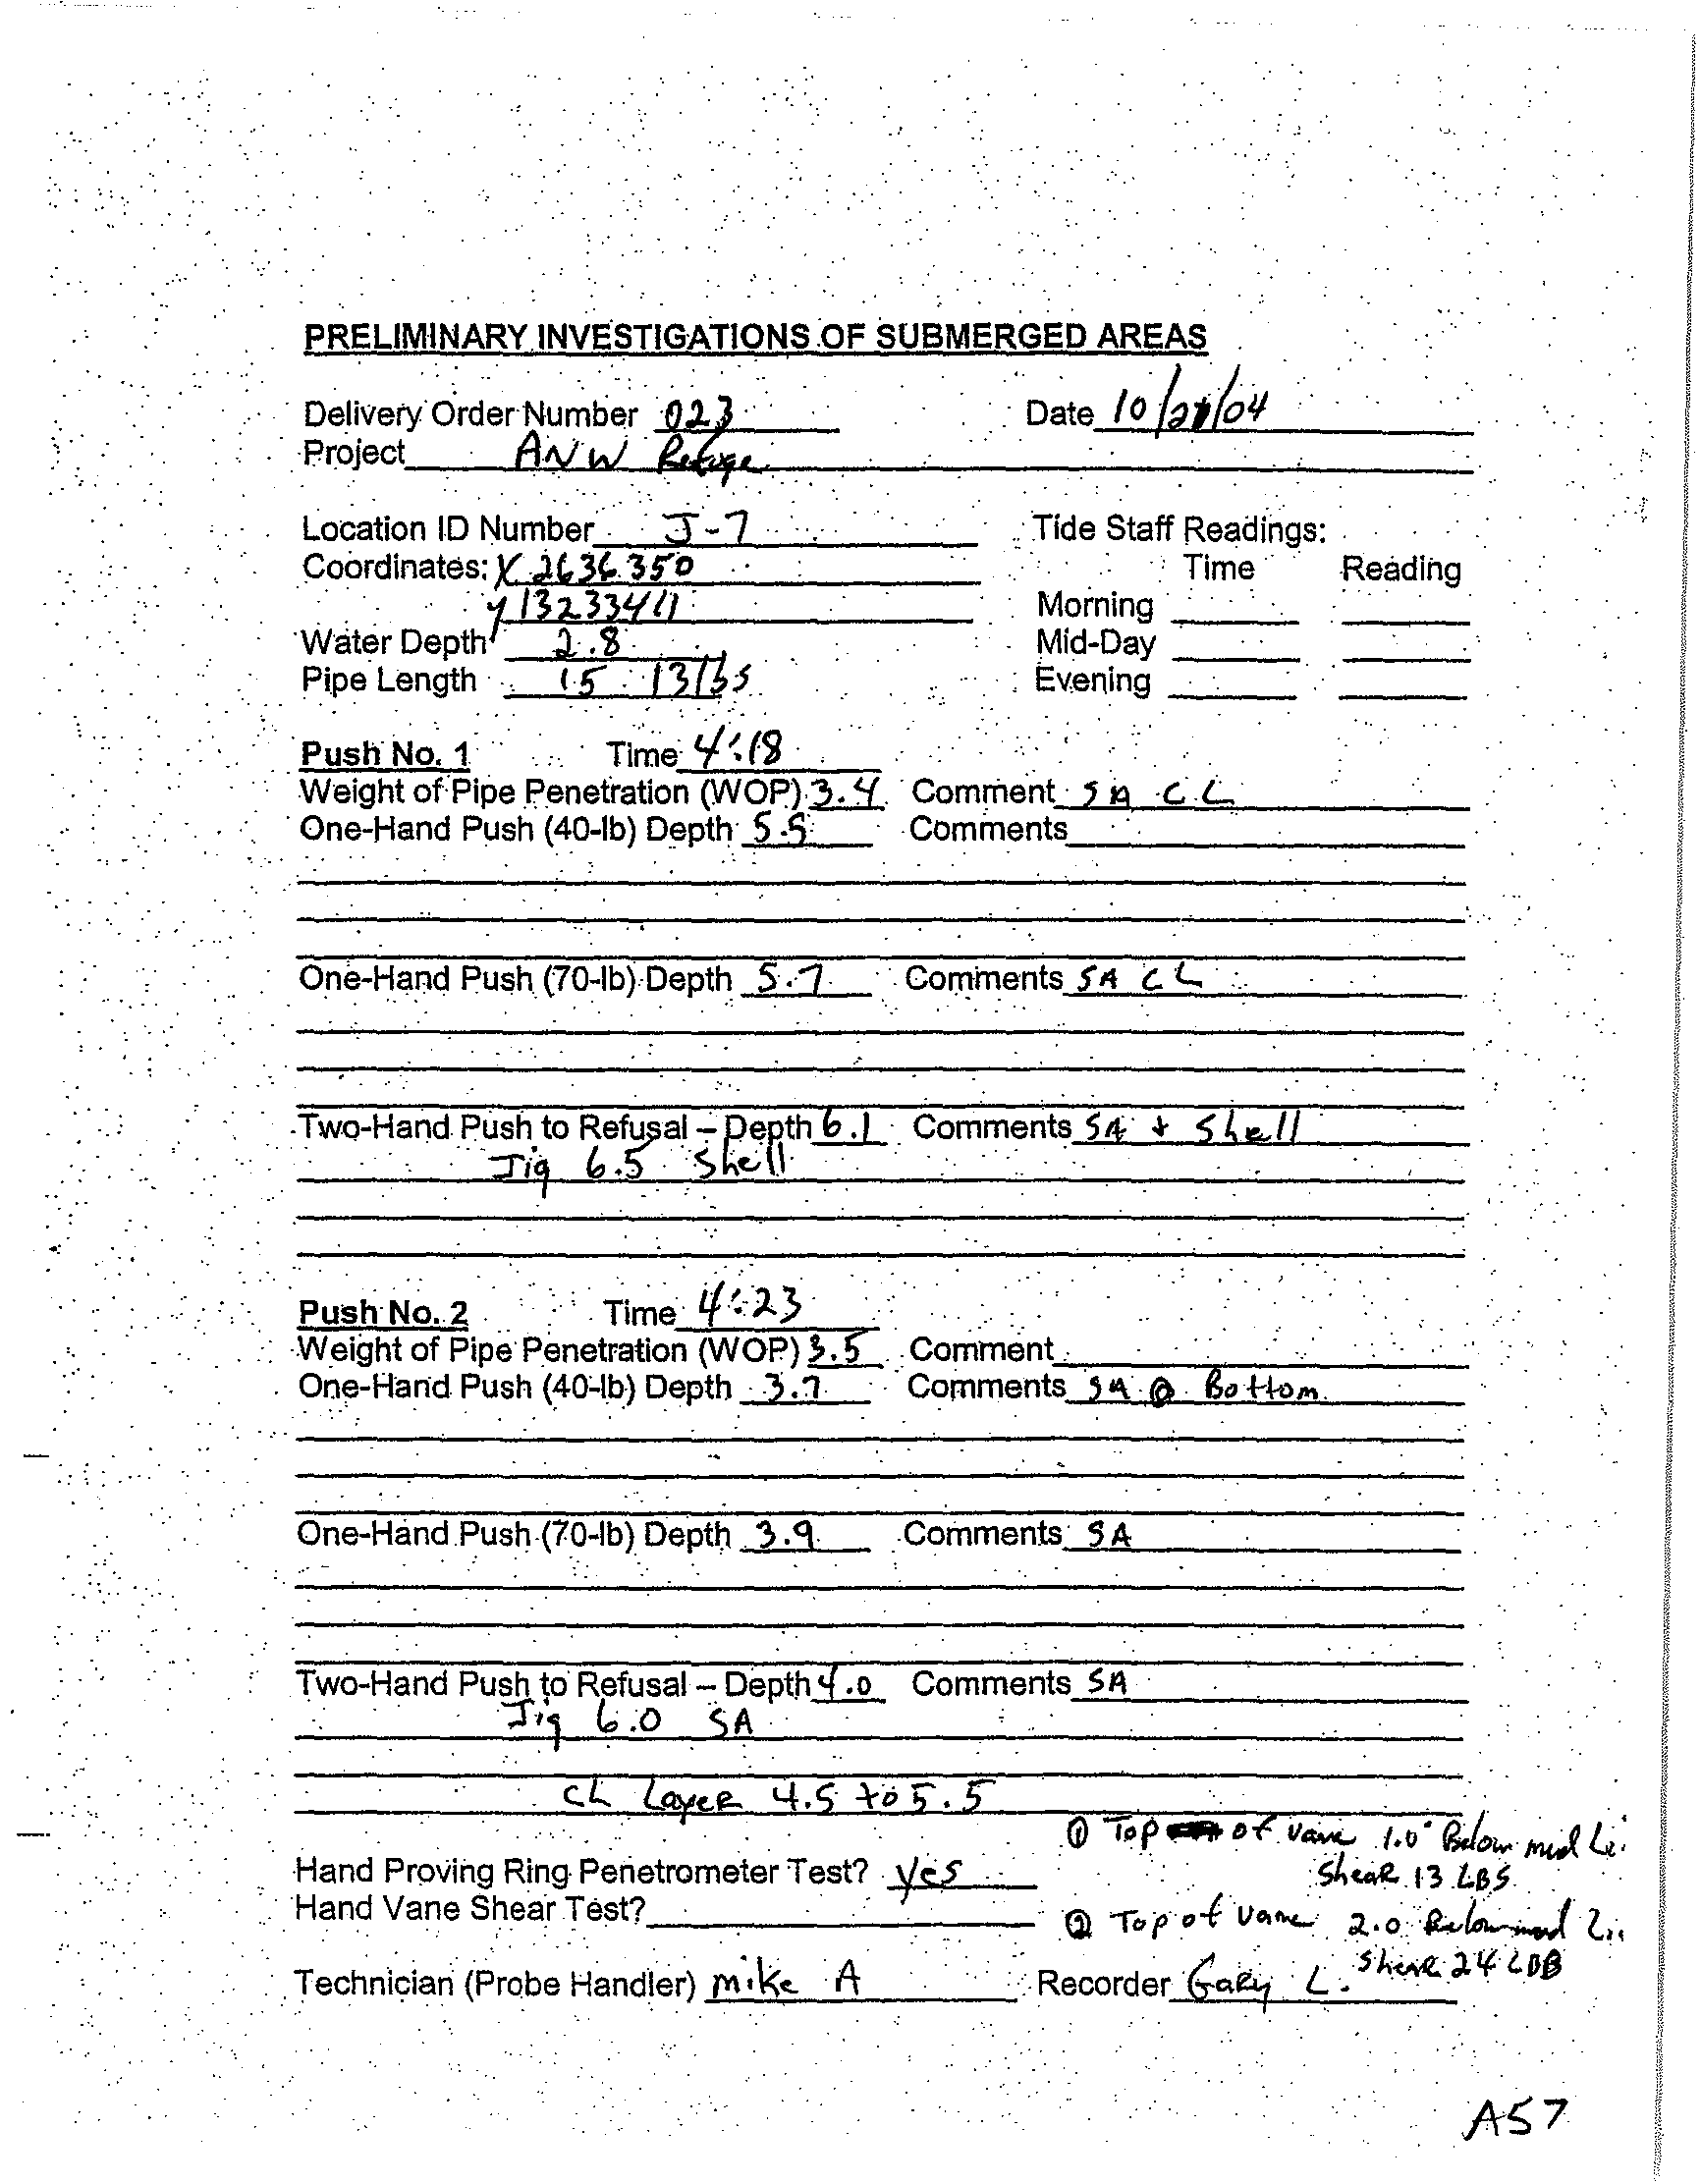 PRELIMINARY INVESTIGATIONS OF SUBMERGED AREAS
Delivery Order Number 023 Date 10/ /04
Project ANW Refuge
Location ID Number J-7 Tide Staff Readings:
Coordinates: X 2636350 Time Reading
y 13233411 Morning
Water Depth 2.8 Mid-Day
Pipe Length 15 13 lbs Evening
Push No. 1 Time 4:18
Weight of Pipe Penetration (WOP) 3.4 Comment SA CL
One-Hand Push (40-lb) Depth 5.5 Comments
One-Hand Push (70-lb) Depth 5.7 Comments SA CL
Two-Hand Push to Refusal – Depth 6.1 Comments SA + Shell
Jig 6.5 Shell
Push No. 2 Time 4:23
Weight of Pipe Penetration (WOP) 3.5 Comment
One-Hand Push (40-lb) Depth 3.7 Comments SA @ Bottom
One-Hand Push (70-lb) Depth 3.9 Comments SA
Two-Hand Push to Refusal – Depth 4.0 Comments SA
Jig 6.0 SA
CL Layer 4.5 to 5.5
① Top of vane 1.0' Below mud
Hand Proving Ring Penetrometer Test? yes Shear 13 LBS
Hand Vane Shear Test?
② Top of vane 2.0 Below mud
Shear 24 LBS
Technician (Probe Handler) Mike A Recorder Gary L.
A57